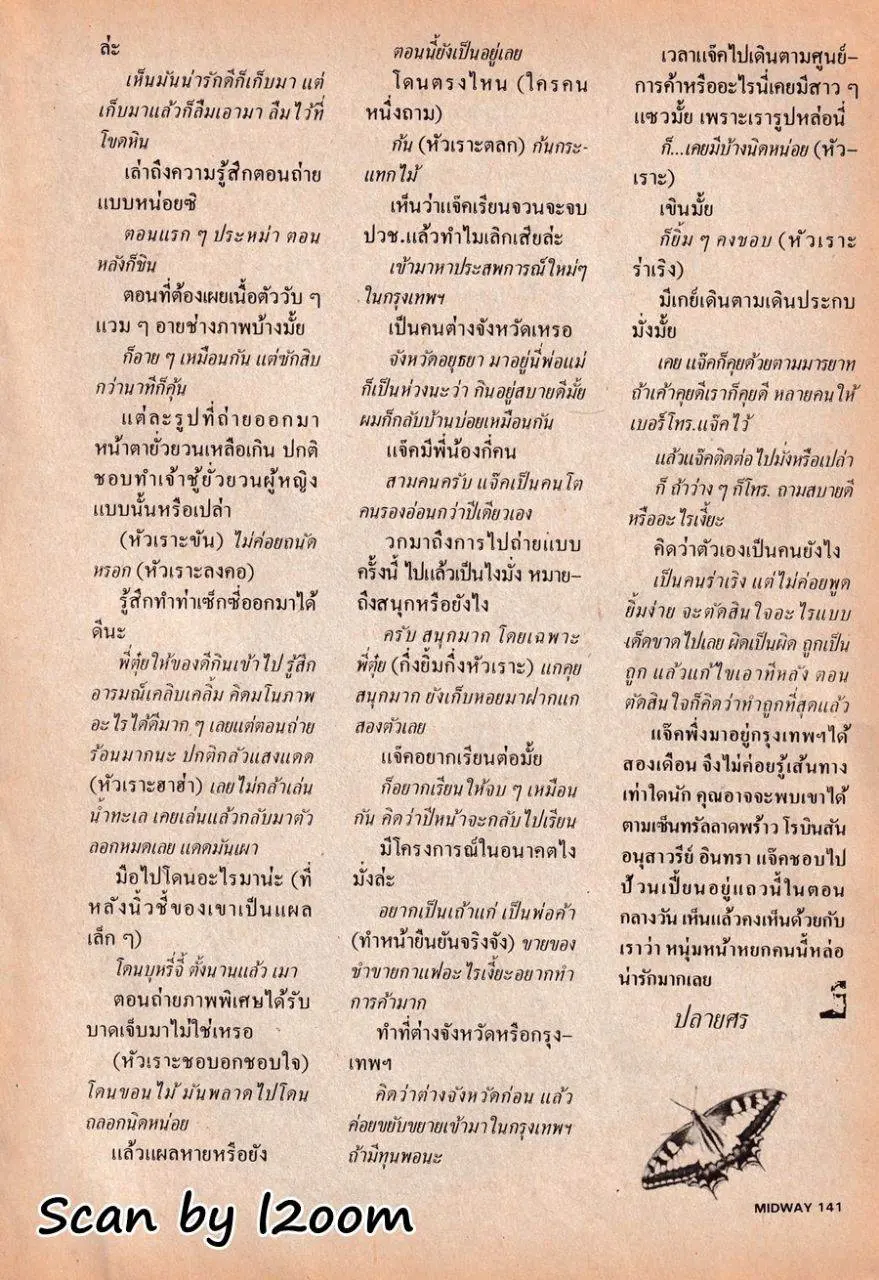 ล่ะ
เห็นมันน่ารักดีก็เก็บมา แต่
เก็บมาแล้วก็ลืมเอามา ลืมไว้ที่
โขดหิน
เล่าถึงความรู้สึกตอนถ่าย
แบบหน่อยซิ
ตอนแรก ๆ ประหม่า ตอน
หลังก็ชิน
ตอนที่ต้องเผยเนื้อตัววับ ๆ
แวม ๆ อายช่างภาพบ้างมั้ย
ก็อาย ๆ เหมือนกัน แต่ซักสิบ
กว่านาทีก็คุ้น
แต่ละรูปที่ถ่ายออกมา
หน้าตายั่วยวนเหลือเกิน ปกติ
ชอบทำเจ้าชู้ยั่วยวนผู้หญิง
แบบนั้นหรือเปล่า
(หัวเราะขัน) ไม่ค่อยถนัด
หรอก (หัวเราะลงคอ)
รู้สึกทำท่าเซ็กซี่ออกมาได้
ดีนะ
พี่ตุ๋ยให้ของดีกินเข้าไป รู้สึก
อารมณ์เคลิบเคลิ้ม คิดมโนภาพ
อะไรได้ดีมาก ๆ เลยแต่ตอนถ่าย
ร้อนมากนะ ปกติกลัวแสงแดด
(หัวเราะฮาฮ่า) เลยไม่กล้าเล่น
น้ำทะเล เคยเล่นแล้วกลับมาตัว
ลอกหมดเลย แดดมันเผา
มือไปโดนอะไรมาน่ะ (ที่
หลังนิ้วชี้ของเขาเป็นแผล
เล็ก ๆ)
โดนบุหรี่จี้ ตั้งนานแล้ว เมา
ตอนถ่ายภาพพิเศษได้รับ
บาดเจ็บมาไม่ใช่เหรอ
(หัวเราะชอบอกชอบใจ)
โดนขอนไม้ มันพลาดไปโดน
ถลอกนิดหน่อย
แล้วแผลหายหรือยัง
ตอนนี้ยังเป็นอยู่เลย
โดนตรงไหน (ใครคน
หนึ่งถาม)
ก้น (หัวเราะตลก) ก้นกระ-
แทกไม้
เห็นว่าแจ๊คเรียนจวนจะจบ
ปวช.แล้วทำไมเลิกเสียล่ะ
เข้ามาหาประสพการณ์ใหม่ๆ
ในกรุงเทพฯ
เป็นคนต่างจังหวัดเหรอ
จังหวัดอยุธยา มาอยู่นี่พ่อแม่
ก็เป็นห่วงนะว่า กินอยู่สบายดีมั้ย
ผมก็กลับบ้านบ่อยเหมือนกัน
แจ๊คมีพี่น้องกี่คน
สามคนครับ แจ๊คเป็นคนโต
คนรองอ่อนกว่าปีเดียวเอง
วกมาถึงการไปถ่ายแบบ
ครั้งนี้ ไปแล้วเป็นไงมั่ง หมาย-
ถึงสนุกหรือยังไง
ครับ สนุกมาก โดยเฉพาะ
พี่ตุ๋ย (กึ่งยิ้มกึ่งหัวเราะ) แกคุย
สนุกมาก ยังเก็บหอยมาฝากแก
สองตัวเลย
แจ๊คอยากเรียนต่อมั้ย
ก็อยากเรียนให้จบ ๆ เหมือน
กัน คิดว่าปีหน้าจะกลับไปเรียน
มีโครงการณ์ในอนาคตไง
มั่งล่ะ
อยากเป็นเถ้าแก่ เป็นพ่อค้า
(ทำหน้ายืนยันจริงจัง) ขายของ
ชำขายกาแฟอะไรเงี้ยะอยากทำ
การค้ามาก
ทำที่ต่างจังหวัดหรือกรุง-
เทพฯ
คิดว่าต่างจังหวัดก่อน แล้ว
ค่อยขยับขยายเข้ามาในกรุงเทพฯ
ถ้ามีทุนพอนะ
เวลาแจ๊คไปเดินตามศูนย์-
การค้าหรืออะไรนี่เคยมีสาว ๆ
แซวมั้ย เพราะเรารูปหล่อนี่
ก็...เคยมีบ้างนิดหน่อย (หัว-
เราะ)
เขินมั้ย
ก็ยิ้ม ๆ คงขอบ (หัวเราะ
ร่าเริง)
มีเกย์เดินตามเดินประกบ
มั่งมั้ย
เคย แจ๊คก็คุยด้วยตามมารยาท
ถ้าเค้าคุยดีเราก็คุยดี หลายคนให้
เบอร์โทร.แจ๊คไว้
แล้วแจ๊คติดต่อไปมั่งหรือเปล่า
ก็ ถ้าว่าง ๆ ก็โทร. ถามสบายดี
หรืออะไรเงี้ยะ
คิดว่าตัวเองเป็นคนยังไง
เป็นคนร่าเริง แต่ไม่ค่อยพูด
ยิ้มง่าย จะตัดสินใจอะไรแบบ
เด็ดขาดไปเลย ผิดเป็นผิด ถูกเป็น
ถูก แล้วแก้ไขเอาทีหลัง ตอน
ตัดสินใจก็คิดว่าทำถูกที่สุดแล้ว
แจ๊คพึ่งมาอยู่กรุงเทพฯได้
สองเดือน จึงไม่ค่อยรู้เส้นทาง
เท่าใดนัก คุณอาจจะพบเขาได้
ตามเซ็นทรัลลาดพร้าว โรบินสัน
อนุสาวรีย์ อินทรา แจ๊คชอบไป
ป้วนเปี้ยนอยู่แถวนี้ในตอน
กลางวัน เห็นแล้วคงเห็นด้วยกับ
เราว่า หนุ่มหน้าหยกคนนี้หล่อ
น่ารักมากเลย
ปลายศร
MIDWAY 141
Scan by l2oom